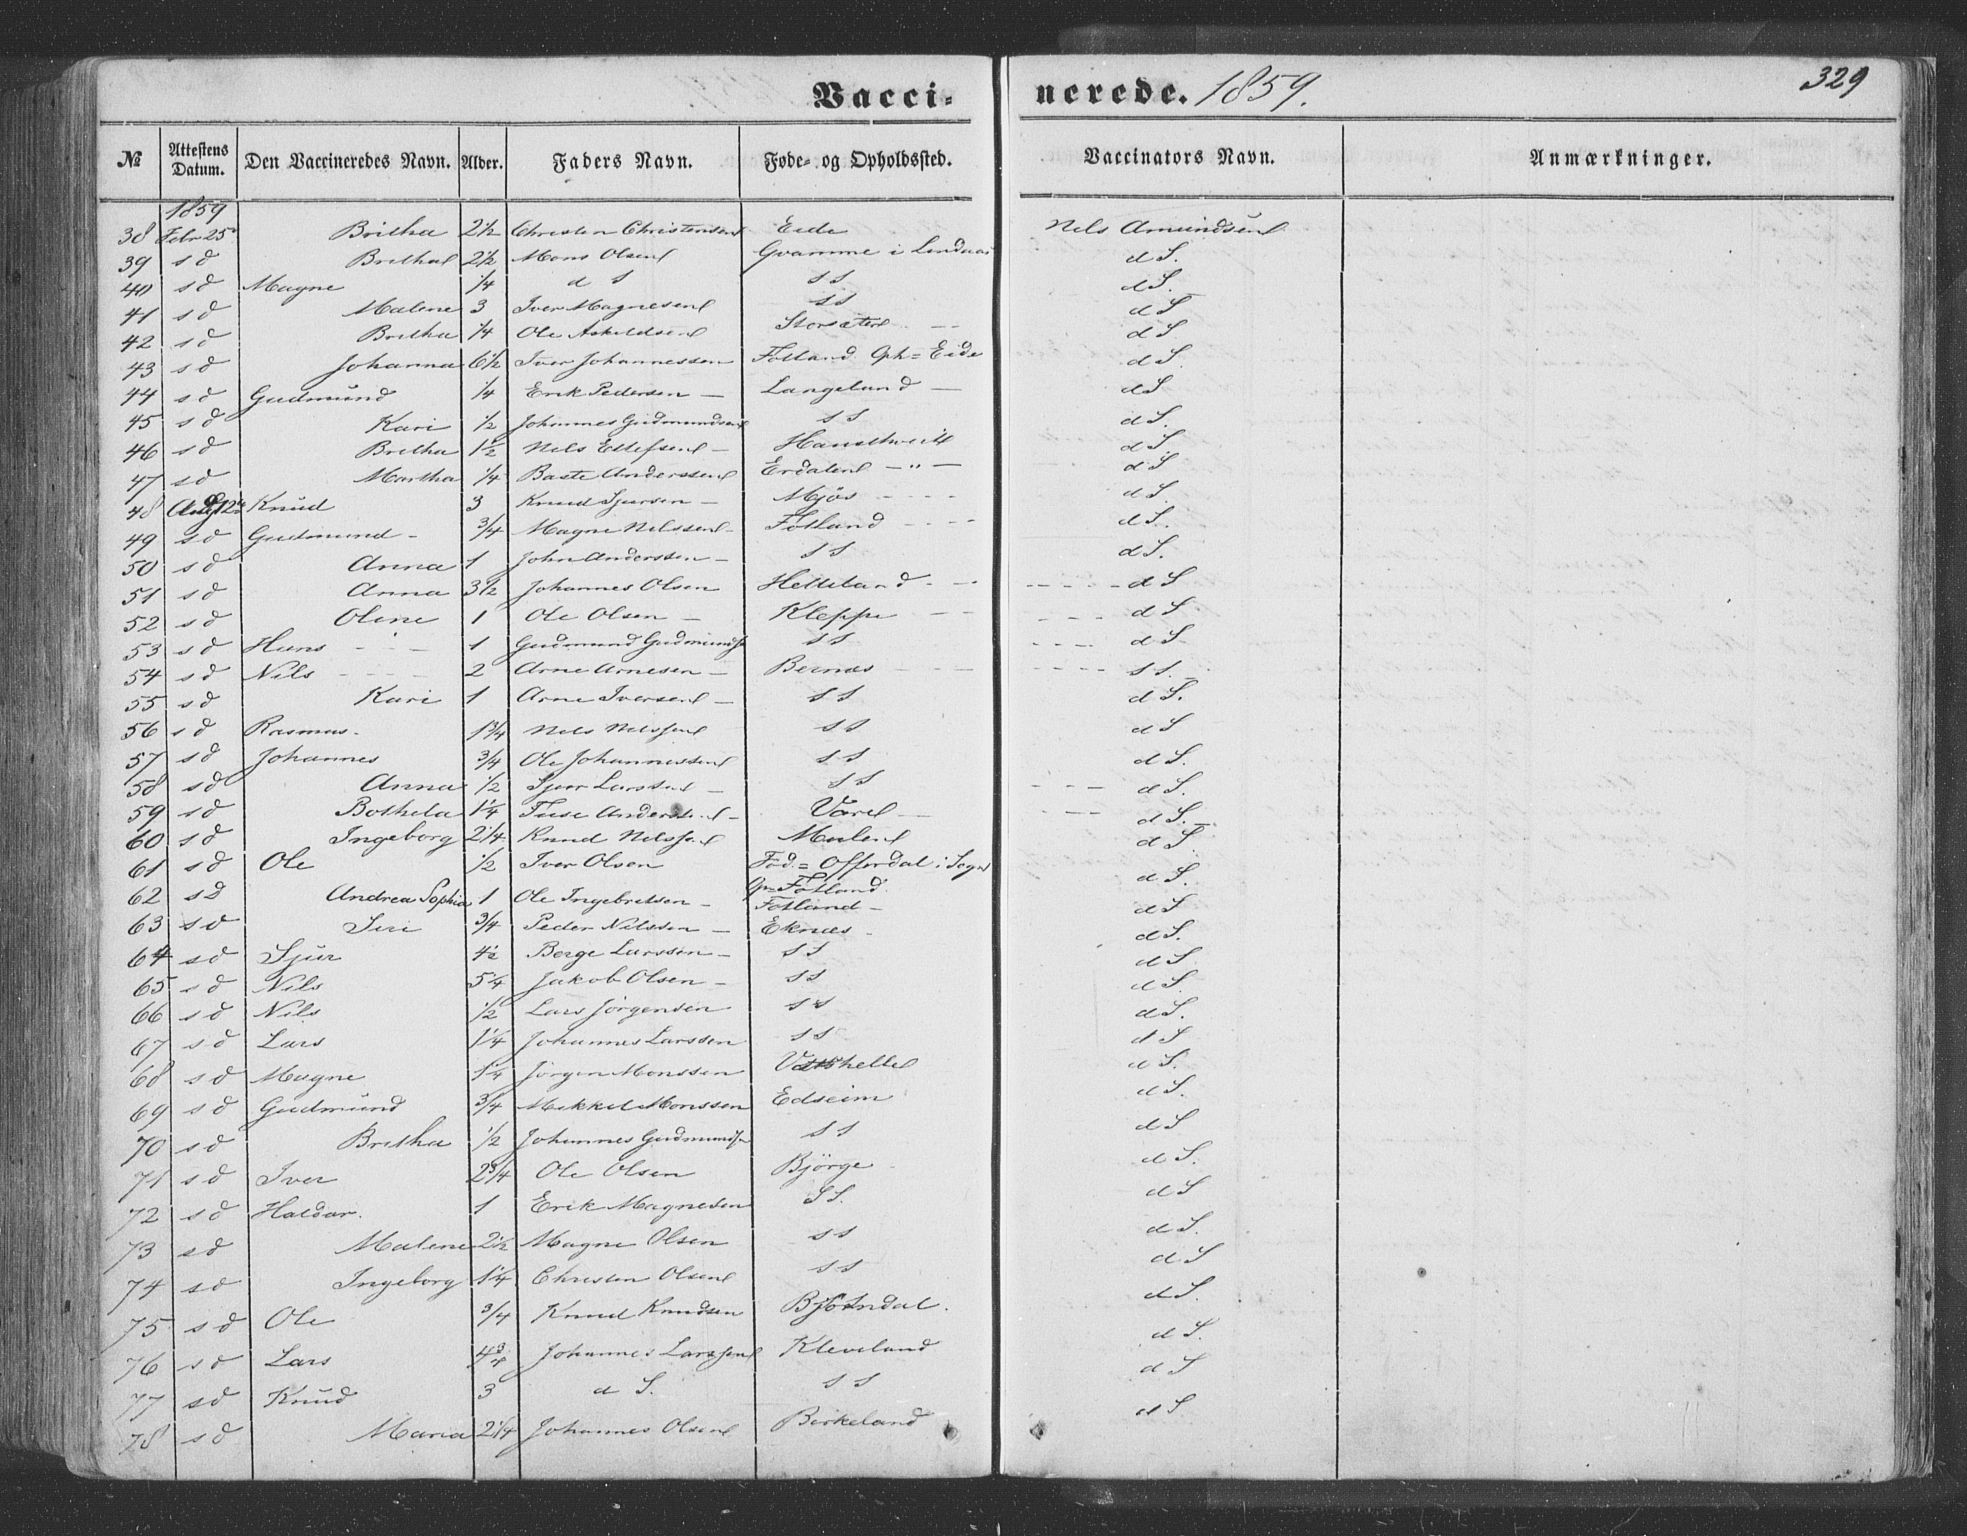 Vacci- nerede. 1859. 329
№ Attestens Datum. Den Vaccineredes Navn. Alder. Faders Navn. Føde- og Opholdssted. Vaccinators Navn. Anmærkninger.
1859
38 Febr 25 Britha 2½ Christen Christensen Eide Nils Amundsen
39 s d Brithe 2½ Mons Olsen Gvamme i Lindaas d S.
40 s d Magne ¼ d S s s d S.
41 s d Malene 3 Iver Magnesen s s d S
42 s d Britha ¼ Ole Askeldsen Storsæter d S
43 s d Johanna 6½ Iver Johannessen Fotland Oph= Eide d S.
44 s d Gudmund ¼ Erik Pedersen — Langeland — d S
45 s d Kari ½ Johannes Gudmundsen s s d S.
46 s d Britha 1½ Nils Ellefsen — d S
47 s d Martha ¼ Baste Anderssen Erdalen — " — d S.
48 Aug 12 Knud 3 Knud Sjursen — Mjøs - - - d S.
49 s d Gudmund - ¾ Magne Nilssen - Fotland - - - d S.
50 s d Anna 1 John Anderssen — s s d S.
51 s d Anna 3½ Johannes Olsen Helleland - - - d S
52 s d Olene 1 Ole Olsen — Kleppe — d S.
53 s d Hans - - - 1 Gudmund Gudmunds s s d S
54 s d Nils - - - 2 Arne Arnesen — Bernæs - - - s s.
55 s d Kari 1 Arne Iversen — s s d S.
56 s d Rasmus. 1¾ Nils Nilssen s s d S
57 s d Johannes ¾ Ole Johannessen s s d S.
58 s d Anna ½ Sjur Larssen — s s d S.
59 s d Bothela 1¼ Anderssen - d S.
60 s d Ingeborg 2¼ Knud Nilssen Mulen d S.
61 s d Ole ½ Iver Olsen Fød.= Offerdal i Sogn d S.
Op= Fotland.
62 s d Andrea Sophia 1 Ole Ingebretsen — Fotland — d S
63 s d Siri ¾ Peder Nilssen — Eknæs - d S.
64 s d Sjur 4½ Berge Larssen — s s d S
65 s d Nils 5¼ Jakob Olsen — s s d S.
66 s d Nils ½ Lars Jørgensen s s d S.
67 s d Lars 1¼ Johannes Larssen s s d S
68 s d Magne 1¼ Jørgen Monssen d S.
69 s d Gudmund ¾ Mikkel Monssen Edseim d S.
70 s d Britha ½ Johannes Gudmunds s s d S
71 s d Iver 2¾ Ole Olsen Bjørge d S.
72 s d Haldor. 1 Erik Magnesen S S. d S
73 s d Malene 2½ Magne Olsen s s d S.
74 s d Ingeborg 1¼ Christen Olsen s s d S
75 s d Ole ¾ Knud Knudsen Bjørndal. d S.
76 s d Lars 4¾ Johannes Larssen Kleveland d S.
77 s d Knud 3 d S. s s d S
78 s d Maria 2¼ Johannes Olsen Birkeland d S